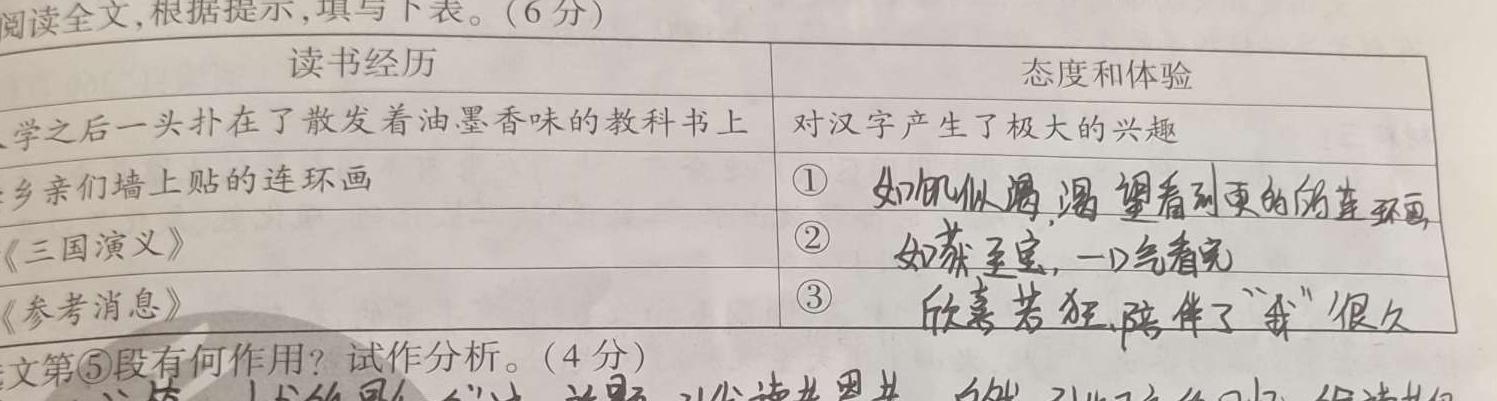 阅读全文,根据提示,填写下表。(6分)
读书经历 态度和体验
学之后一头扑在了散发着油墨香味的教科书上 对汉字产生了极大的兴趣
乡亲们墙上贴的连环画 ① 如饥似渴,渴望看到更多的连环画
《三国演义》 ② 如获至宝,一口气看完
《参考消息》 ③ 欣喜若狂,陪伴了“我”很久
文第⑤段有何作用?试作分析。(4分)